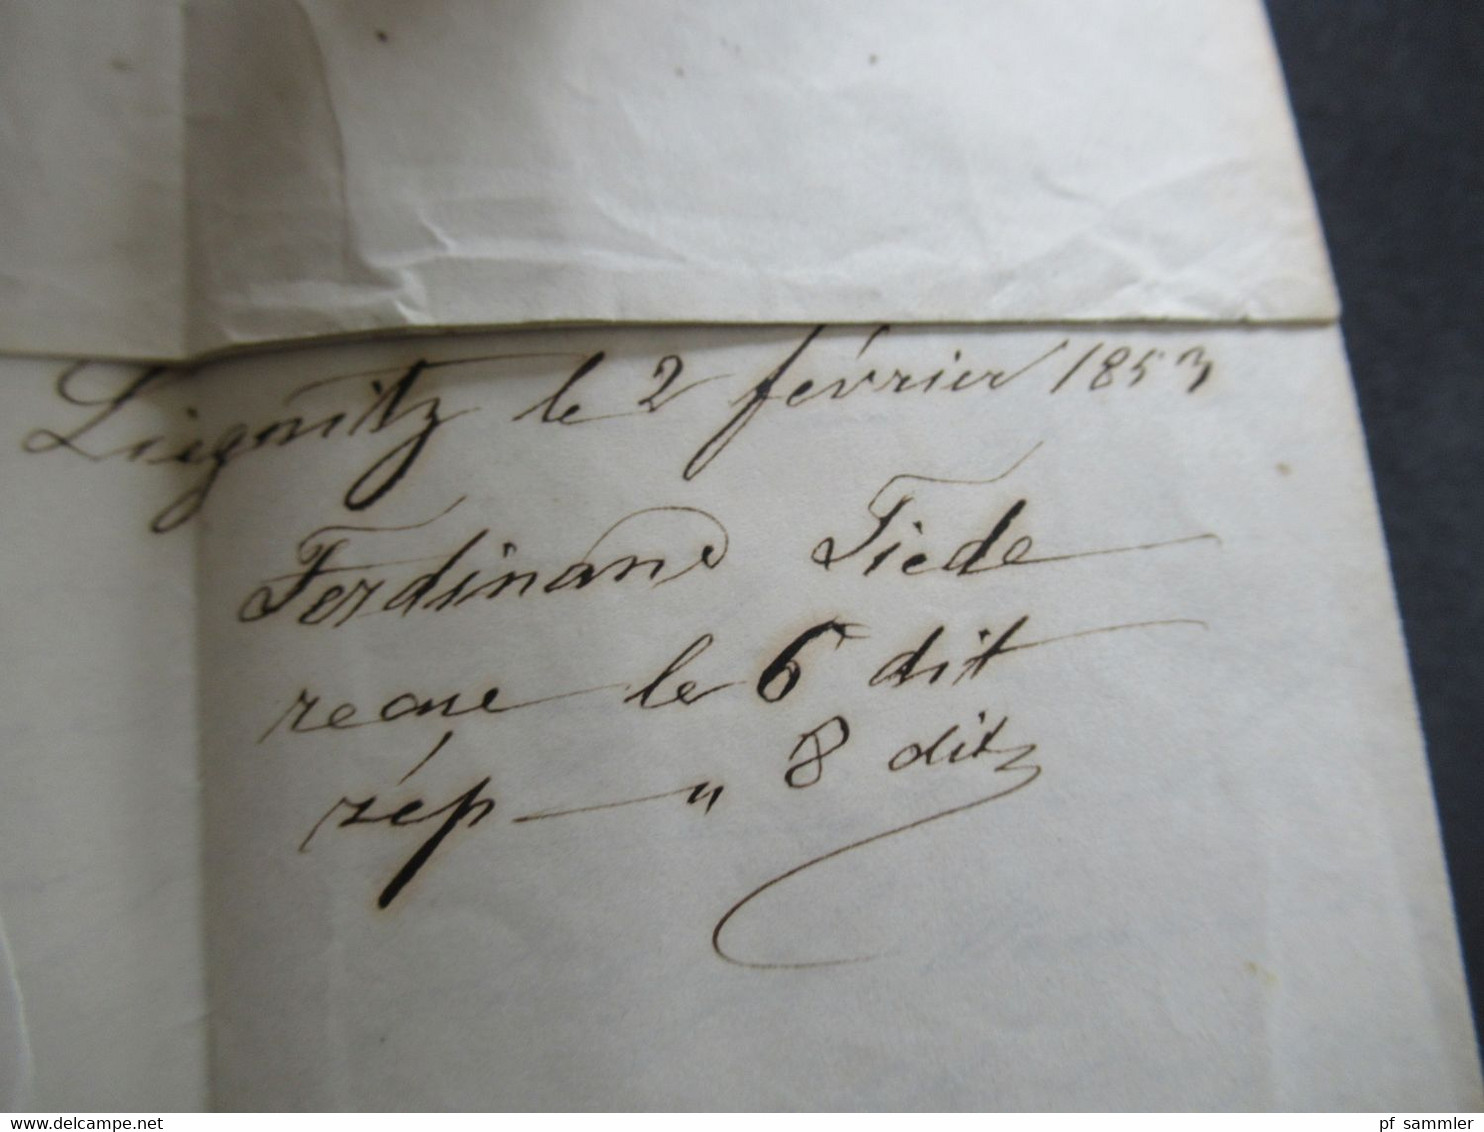 Liegnitz le 2 février 1853
Ferdinand Tiede
recue le 6 dit
rép — " 8 dit
www.delcampe.net
pf_sammler